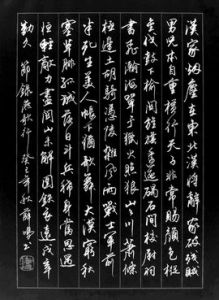 漢家烟塵在東北漢將辭家破殘賊
男兒本自重橫行天子非常賜顏色摐
金伐鼓下榆關旌旆逶迤碣石間校尉羽
書飛瀚海單于獵火照狼山山川蕭條
極邊土胡騎憑陵雜風雨戰士軍前
半死生美人帳下猶歌舞大漠窮秋
塞草腓孤城落日斗兵稀身當恩遇
恒輕敵力盡關山未解圍鐵衣遠戍辛
勤久 節錄燕歌行 癸巳年秋 書